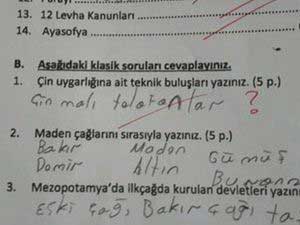 13. 12 Levha Kanunları
14. Ayasofya
B. Aşağıdaki klasik soruları cevaplayınız.
1. Çin uygarlığına ait teknik buluşları yazınız. (5 p.)
Çin malı telefonlar ?
2. Maden çağlarını sırasıyla yazınız. (5 p.)
Bakır Maden Gümüş
Demir Altın
3. Mezopotamya'da ilkçağda kurulan devletleri
Eski çağ, Bakır çağı